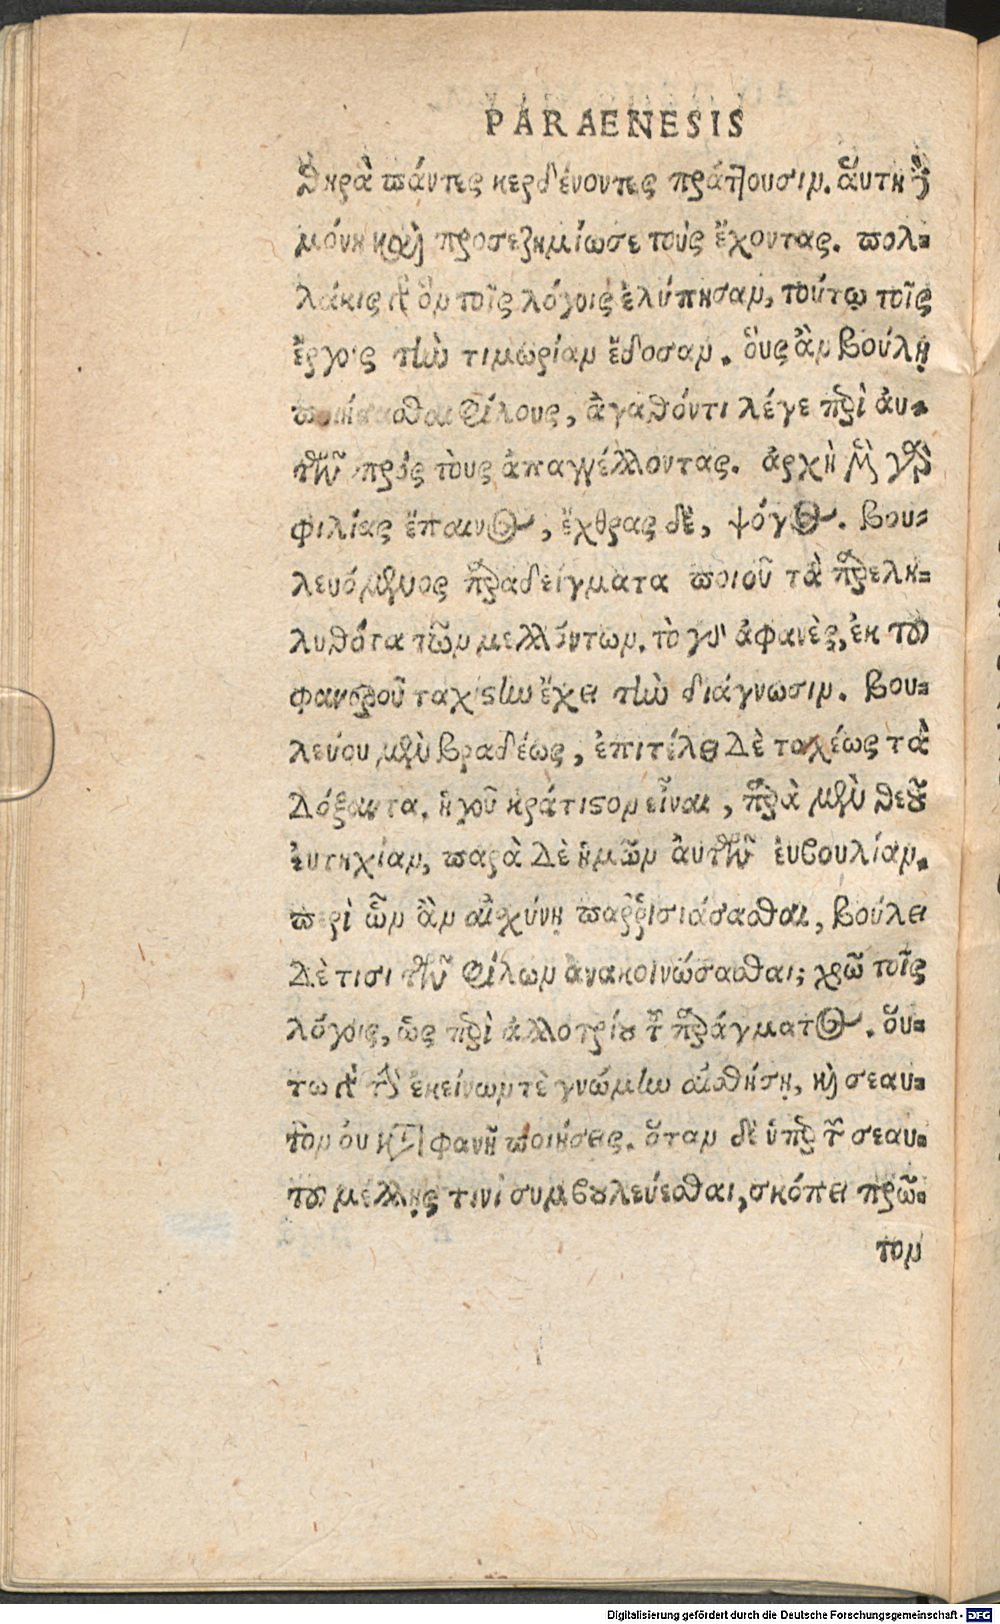 PARAENESIS
θηρὰ πάντες κερδένοντες πράττουσιν. ἅυτη δὲ
μόνη καὶ προσεζημίωσε τοὺς ἔχοντας. πολ-
λάκις γὰρ ὃν τοῖς λόγοις ἐλύπησαν, τούτῳ τοῖς
ἔργοις τὴν τιμωρίαν ἔδοσαν. ὅυς ἂν βούλῃ
ποιήσασθαι φίλους, ἀγαθόντι λέγε περὶ ἀυ-
τῶν πρὸς τοὺς ἀπαγγέλλοντας. ἀρχὴ μὲν γὰρ
φιλίας ἔπαινος, ἔχθρας δὲ, ψόγος. βου-
λευόμενος παραδείγματα ποιοῦ τὰ παρελη-
λυθότα τῶν μελλόντων. τὸ γὰρ ἀφανὲς, ἐκ τοῦ
φανεροῦ ταχίστην ἔχει τὴν διάγνωσιν. βου-
λεύου μὲν βραδέως, ἐπιτέλει δὲ ταχέως τὰ
δόξαντα. ἡγοῦ κράτιστον εἶναι, παρὰ μὲν θεοῦ
ἐυτηχίαν, παρὰ δὲ ἡμῶν ἀυτῶν ἐυβουλίαν.
περὶ ὧν ἂν αἰσχύνῃ παῤῥισιάσασθαι, βούλει
δὲ τισι τῶν φίλων ανακοινώσασθαι; χρῶ τοῖς
λόγοις, ὡς περὶ ἀλλοτρίου τοῦ πράγματος. ὅυ-
τω γὰρ τὴν ἐκείνων τὲ γνώμην αἰσθήσῃ, καὶ σεαυ-
τὸν ὀυ καταφανῆ ποιήσεις. ὅταν δὲ ὑπὲρ τοῦ σεαυ-
τοῦ μέλλῃς τινὶ συμβουλεύεσθαι, σκόπει πρῶ-
τον